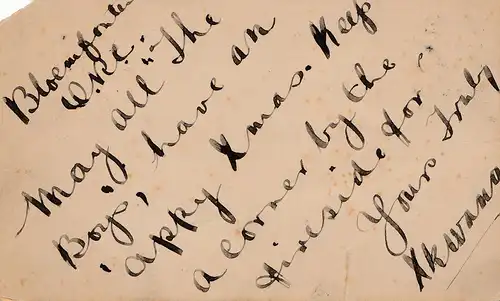 Bloemfontein
O.R.C. "The
May all the
Boys, have an
'appy Xmas. Keep
a corner by the
fireside for
Yours Truly